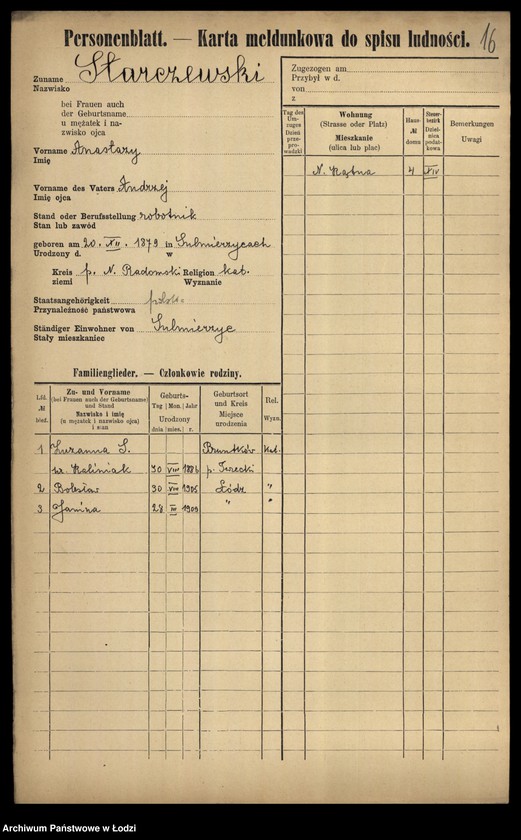 Personenblatt. — Karta meldunkowa do spisu ludności. 16
Zuname Starczewski
Nazwisko
bei Frauen auch
der Geburtsname
u mężatek i na-
zwisko ojca
Vorname Anastazy
Imię
Vorname des Vaters Andrzej
Imię ojca
Stand oder Berufsstellung robotnik
Stan lub zawód
geboren am 20. XII. 1879 in Sulmierzycach
Urodzony d. w
Kreis p. N. Radomski Religion kat.
ziemi Wyznanie
Staatsangehörigkeit polska
Przynależność państwowa
Ständiger Einwohner von Sulmierzyce
Stały mieszkaniec
Zugezogen am
Przybył w d.
von
z
Tag des Um-
zuges
Dzień
prze-
prowadzki
Wohnung
(Strasse oder Platz)
Mieszkanie
(ulica lub plac)
Haus-
№
domu
Steuer-
bezirk
Dziel-
nica
podat-
kowa
Bemerkungen
Uwagi
N. Kątna 4 XIV
Familienglieder. — Członkowie rodziny.
Lfd.
№
bież.
Zu- und Vorname
(bei Frauen auch der Geburtsname)
und Stand
Nazwisko i imię
(u mężatek i nazwisko ojca)
i stan
Geburts-
Tag Mon. Jahr
Urodzony
dnia mies. r.
Geburtsort
und Kreis
Miejsce
urodzenia
Rel.
Wyzn.
1 Zuzanna S. kat.
30 VIII 1886 p. Turecki
2 Bolesław 30 VIII 1906 Łódź "
3 Janina 28 1909 " "
Archiwum Państwowe w Łodzi